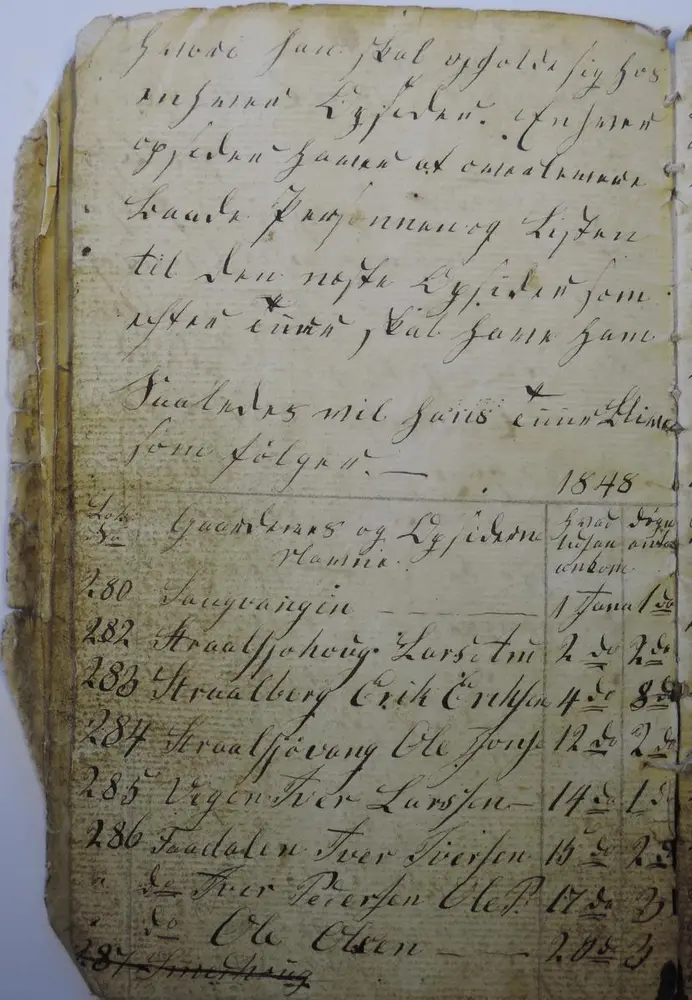 hvori han skal opholde sig hos
enhver Opsider. Enhver
opsider haver at overlevere
baade Personnen og Listen
til den næste Opsider som
efter tuur skal have ham
Saaledes vil hans tuur blive
som følger. —
1848
Løb No Gaardenes og Opsidernes Navne. hvad tid han ankom døgn antal
280 Sangvangen — 1 Janu 1 do
282 Straalsjøhoug Lars Am 2 do 2 do
283 Straalberg Erik Eriksen 4 do 8 do
284 Straalsjøvang Ole Jons 12 do 2 do
285 Vegen Iver Larssen — 14 do 1 do
286 Faadalen Iver Iversen 15 do 2 do
" do Iver Pedersen Ole P. 17 do 3
" do Ole Olsen — 20 do 3
287